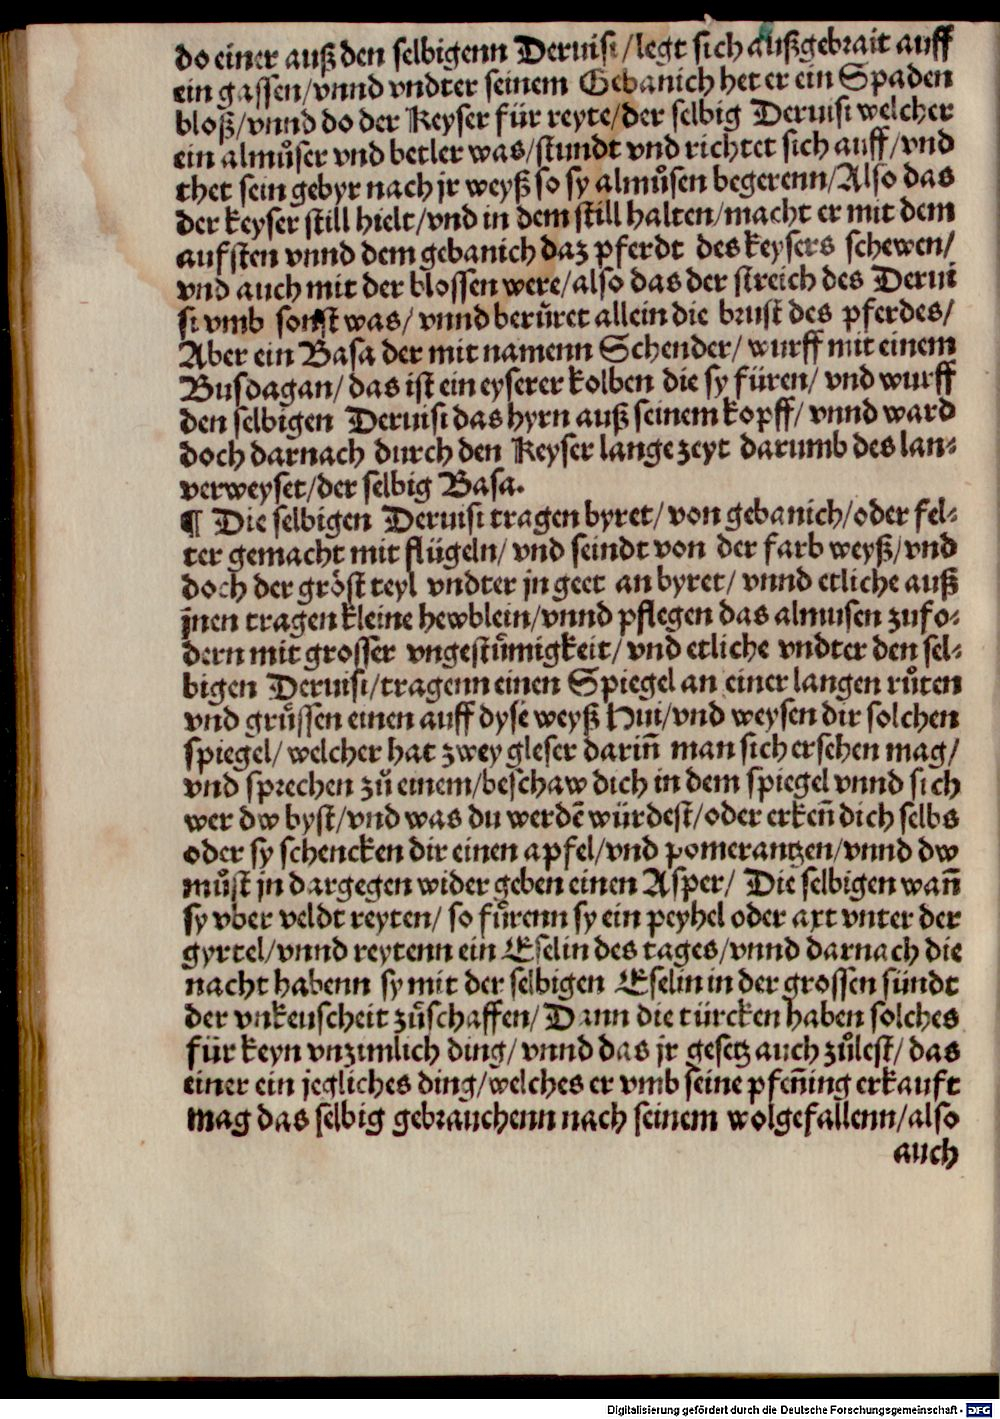 do einer auß den selbigenn Deruisi/legt sich außgebrait auff
ein gassen/vnnd vndter seinem Gebanich het er ein Spaden
bloß/vnnd do der Keyser für reyte/der selbig Deruisi welcher
ein almůser vnd betler was/stundt vnd richtet sich auff/vnd
thet sein gebyr nach jr weyß so sy almůsen begerenn/Also das
der keyser still hielt/vnd in dem still halten/macht er mit dem
aufsten vnnd dem gebanich daz pferdt des keysers schewen/
vnd auch mit der blossen were/also das der streich des Derui
si vmb sonst was/ vnnd berůret allein die brust des pferdes/
Aber ein Basa der mit namenn Schender/ wurff mit einem
Busdagan/ das ist ein eyserer kolben die sy füren/ vnd wurff
den selbigen Deruisi das hyrn auß seinem kopff/ vnnd ward
doch darnach durch den Keyser lange zeyt darumb des lan-
verweyset/der selbig Basa.
¶ Die selbigen Deruisi tragen byret/ von gebanich/oder fel-
ter gemacht mit flügeln/ vnd seindt von der farb weyß/vnd
doch der gröst teyl vndter jn geet an byret/ vnnd etliche auß
jnen tragen kleine hewblein/vnnd pflegen das almusen zufo-
dern mit grosser vngestůmigkeit/ vnd etliche vndter den sel-
bigen Deruisi/tragenn einen Spiegel an einer langen růten
vnd grůssen einen auff dyse weyß Hui/vnd weysen dir solchen
spiegel/ welcher hat zwey gleser dariñ man sich ersehen mag/
vnd sprechen zů einem/beschaw dich in dem spiegel vnnd sich
wer dw byst/vnd was du werdē würdest/oder erkeñ dich selbs
oder sy schencken dir einen apfel/vnd pomerantzen/vnnd dw
můst jn dargegen wider geben einen Asper/ Die selbigen wañ
sy vber veldt reyten/ so fůrenn sy ein peyhel oder axt vnter der
gyrtel/vnnd reytenn ein Eselin des tages/vnnd darnach die
nacht habenn sy mit der selbigen Eselin in der grossen sündt
der vnkeuscheit zůschaffen/Dann die türcken haben solches
für keyn vnzimlich ding/ vnnd das jr gesetz auch zůlest/ das
einer ein jegliches ding/welches er vmb seine pfeñing erkauft
mag das selbig gebrauchenn nach seinem wolgefallenn/also
auch
Digitalisierung gefördert durch die Deutsche Forschungsgemeinschaft - DFG